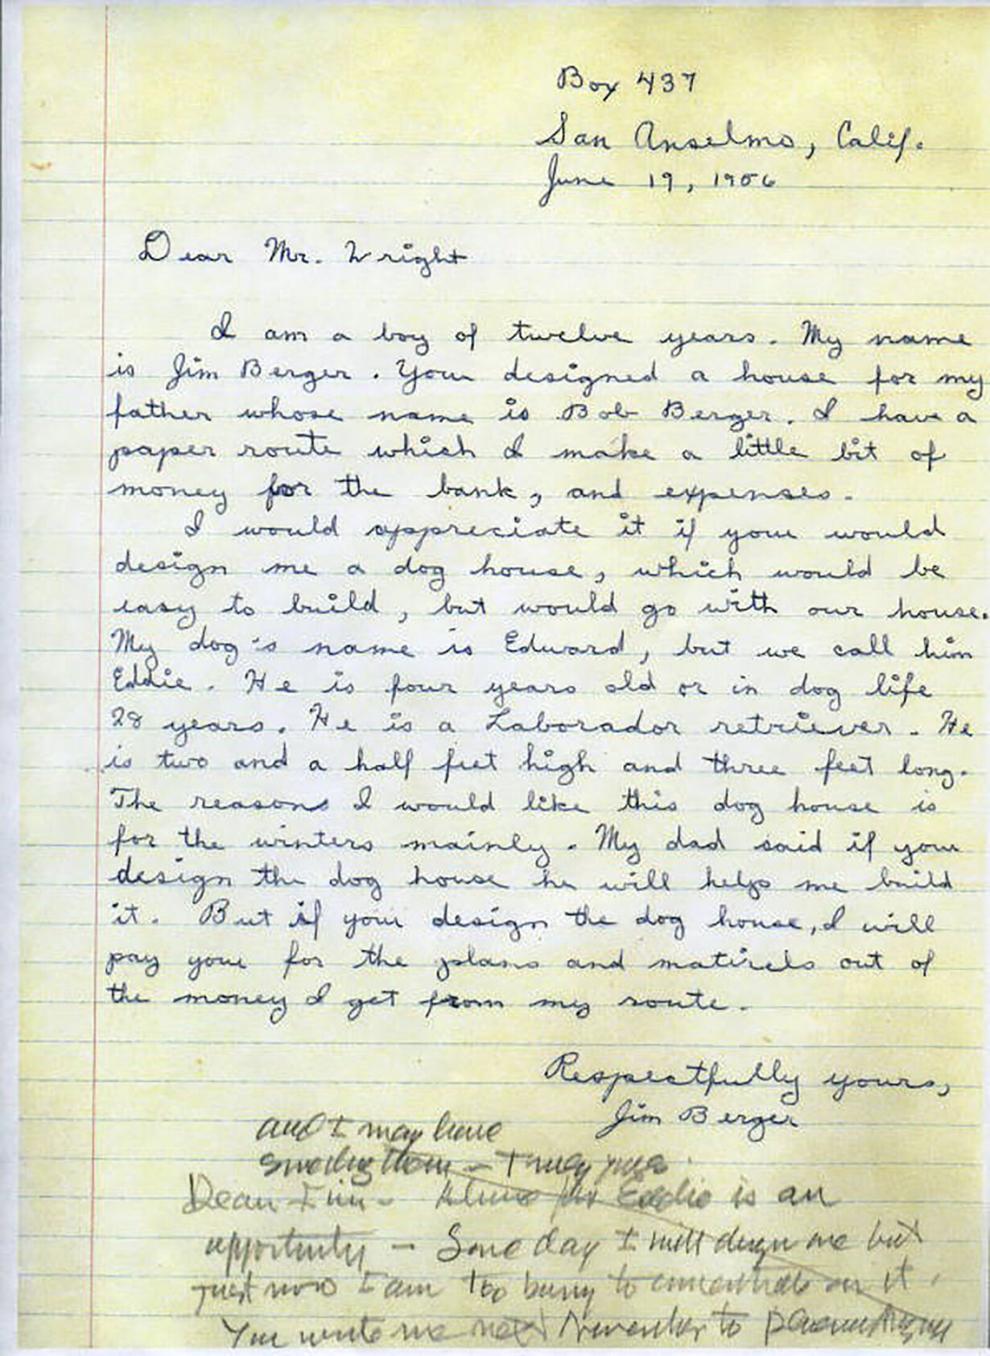 Box 437
San Anselmo, Calif.
June 19, 1956
Dear Mr. Wright
I am a boy of twelve years. My name
is Jim Berger. You designed a house for my
father whose name is Bob Berger. I have a
paper route which I make a little bit of
money for the bank, and expenses.
I would appreciate it if you would
design me a dog house, which would be
easy to build, but would go with our house.
My dog's name is Edward, but we call him
Eddie. He is four years old or in dog life
28 years. He is a Laborador retriever. He
is two and a half feet high and three feet long.
The reasons I would like this dog house is
for the winters mainly. My dad said if you
design the dog house he will help me build
it. But if you design the dog house, I will
pay you for the plans and matirels out of
the money I get from my route.
Respectfully yours,
Jim Berger
and I may have
something then - Truly yours
Dear Jim - House for Eddie is an
opportunity - Some day I will design one but
just now I am too busy to concentrate on it.
You write me next November to